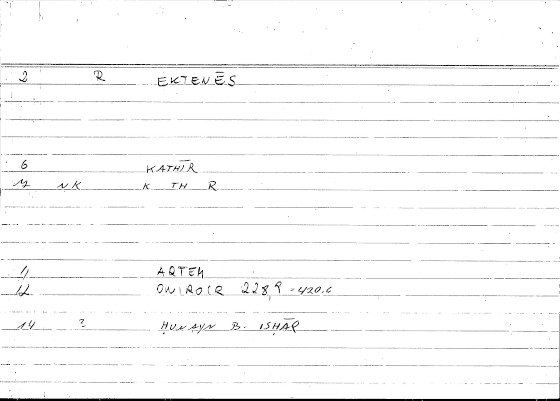 2 R EKTENĒS
6 KATHĪR
7 NK K TH R
11 ARTEM
12 ONIROCR 228,9 = 420.6
14 ? ḤUNAYN B. ISḤĀQ